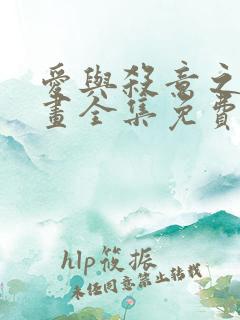 愛與殺意之
畫全集免費
hlp筱振
未经同意禁止转载